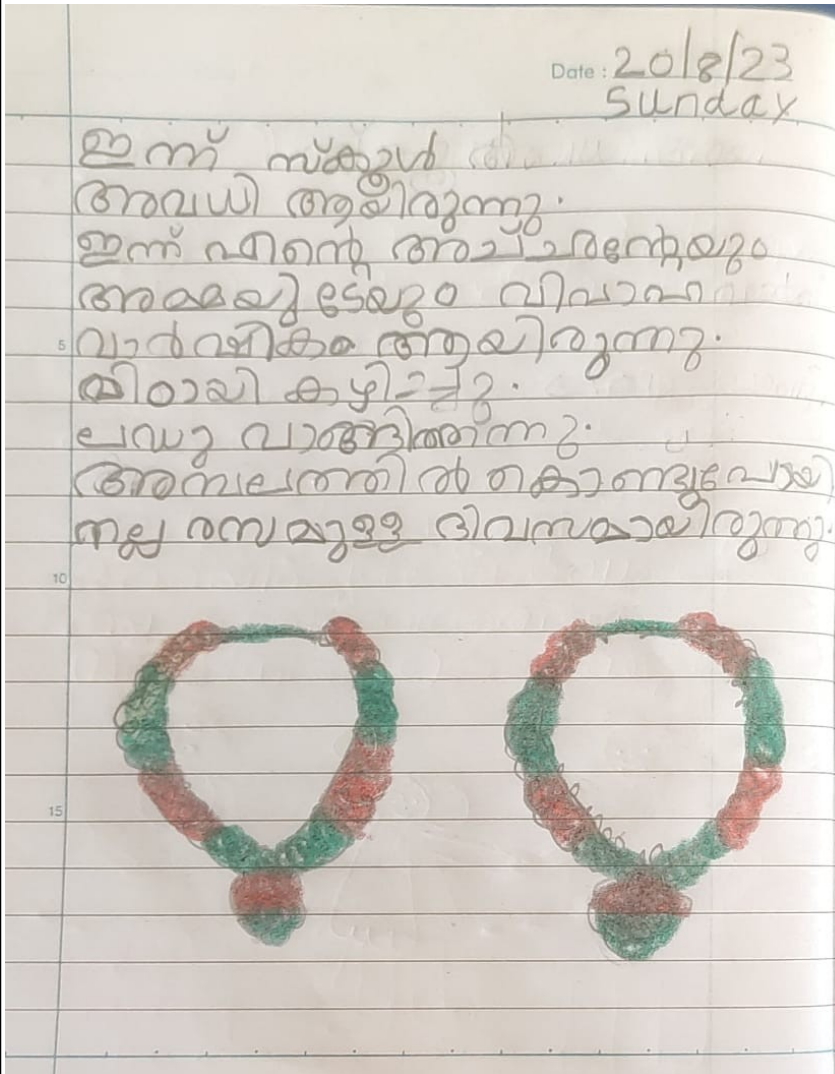 Date : 20/8/23
Sunday
ഇന്ന് സ്കൂൾ
അവധി ആയിരുന്നു.
ഇന്ന് എൻ്റെ അച്ഛൻ്റേയും
അമ്മയുടേയും വിവാഹ
വാർഷികം ആയിരുന്നു.
മിഠായി കഴിച്ചു.
ലഡു വാങ്ങിത്തിന്നു.
അമ്പലത്തിൽ കൊണ്ടുപോയി
നല്ല രസമുള്ള ദിവസമായിരുന്നു.
5
10
15